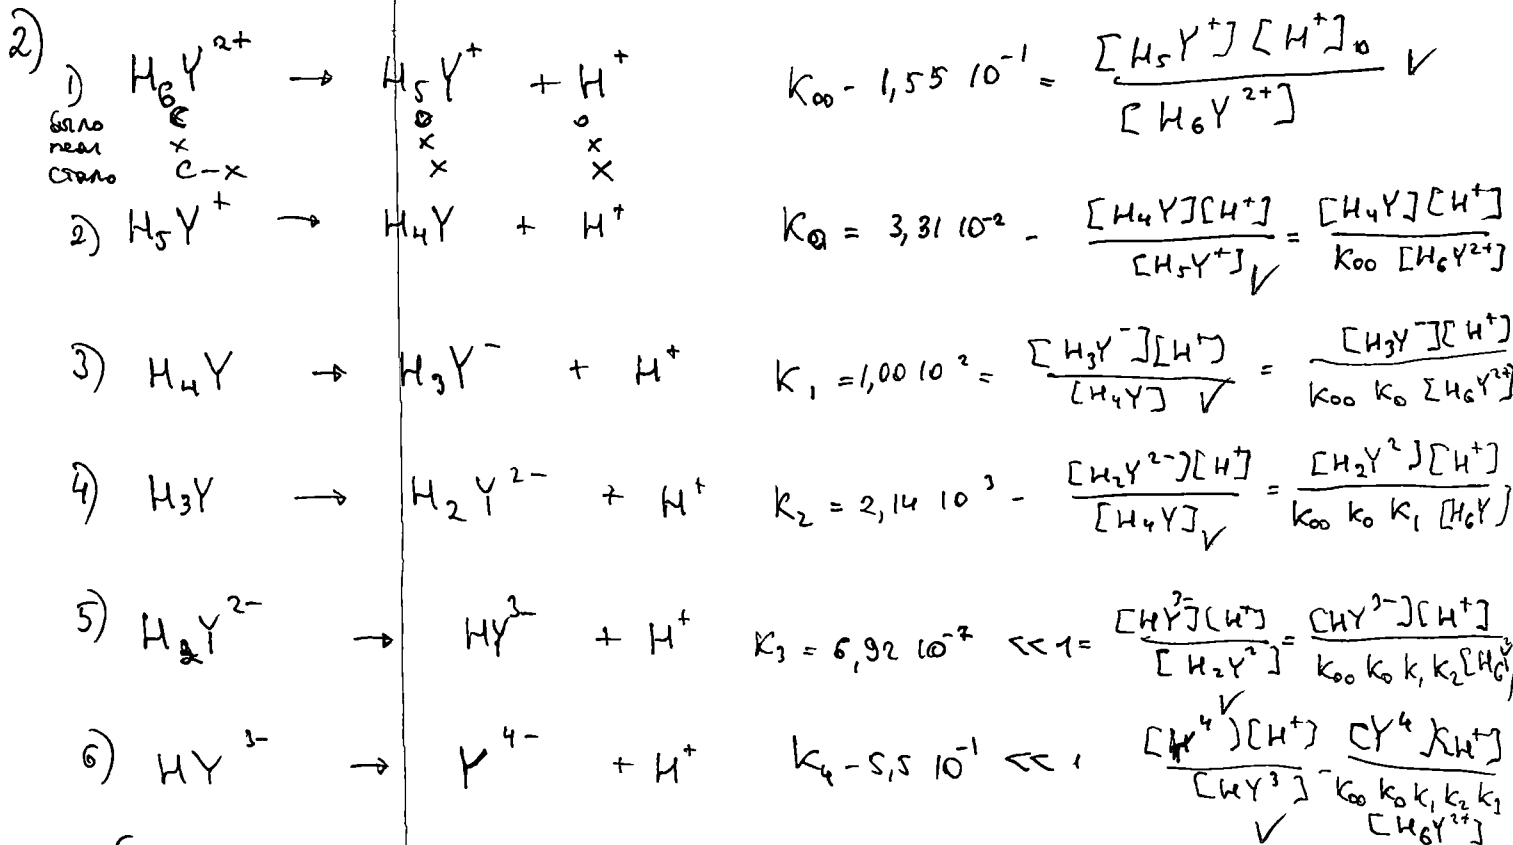 2)
1) H₆Y²⁺ → H₅Y⁺ + H⁺ K₀₀ - 1,55 10⁻¹ = [H₅Y⁺][H⁺] / [H₆Y²⁺] ✓
было c o o
x x x
стало c-x x x
2) H₅Y⁺ → H₄Y + H⁺ K₀ = 3,31 10⁻² - [H₄Y][H⁺] / [H₅Y⁺] ✓ = [H₄Y][H⁺] / K₀₀ [H₆Y²⁺]
3) H₄Y → H₃Y⁻ + H⁺ K₁ = 1,00 10² = [H₃Y⁻][H⁺] / [H₄Y] ✓ = [H₃Y⁻][H⁺] / K₀₀ K₀ [H₆Y²⁺]
4) H₃Y → H₂Y²⁻ + H⁺ K₂ = 2,14 10³ - [H₂Y²⁻][H⁺] / [H₄Y] ✓ = [H₂Y²][H⁺] / K₀₀ K₀ K₁ [H₆Y]
5) H₂Y²⁻ → HY³⁻ + H⁺ K₃ = 6,92 10⁻⁷ << 1 = [HY³⁻][H⁺] / [H₂Y²] ✓ = [HY³⁻][H⁺] / K₀₀ K₀ K₁ K₂ [H₆Y
6) HY³⁻ → Y⁴⁻ + H⁺ K₄ - 5,5 10⁻¹ << 1 [Y⁴][H⁺] / [HY³] ✓ - [Y⁴][H⁺] / K₀₀ K₀ K₁ K₂ K₃ [H₆Y²⁺]